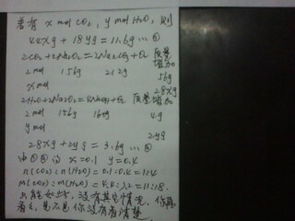 若有 x mol CO₂, y mol H₂O, 则
44xg + 18yg = 11.6g …①
2CO₂+2Na₂O₂=2Na₂CO₃+O₂ 质量增加
2mol 156g 212g 56g
xmol 28xg
2H₂O+2Na₂O₂=4NaOH+O₂ 质量增加
2mol 156g 160g 4g
ymol 2yg
28xg+2yg = 3.6g …②
由①②得 x=0.1 y=0.4
n(CO₂):n(H₂O)=0.1:0.4=1:4
m(CO₂):m(H₂O)=4.4:7.2=11:18.
只能如此, 没有其它情况, 你再
看看, 是不是你没有看清楚